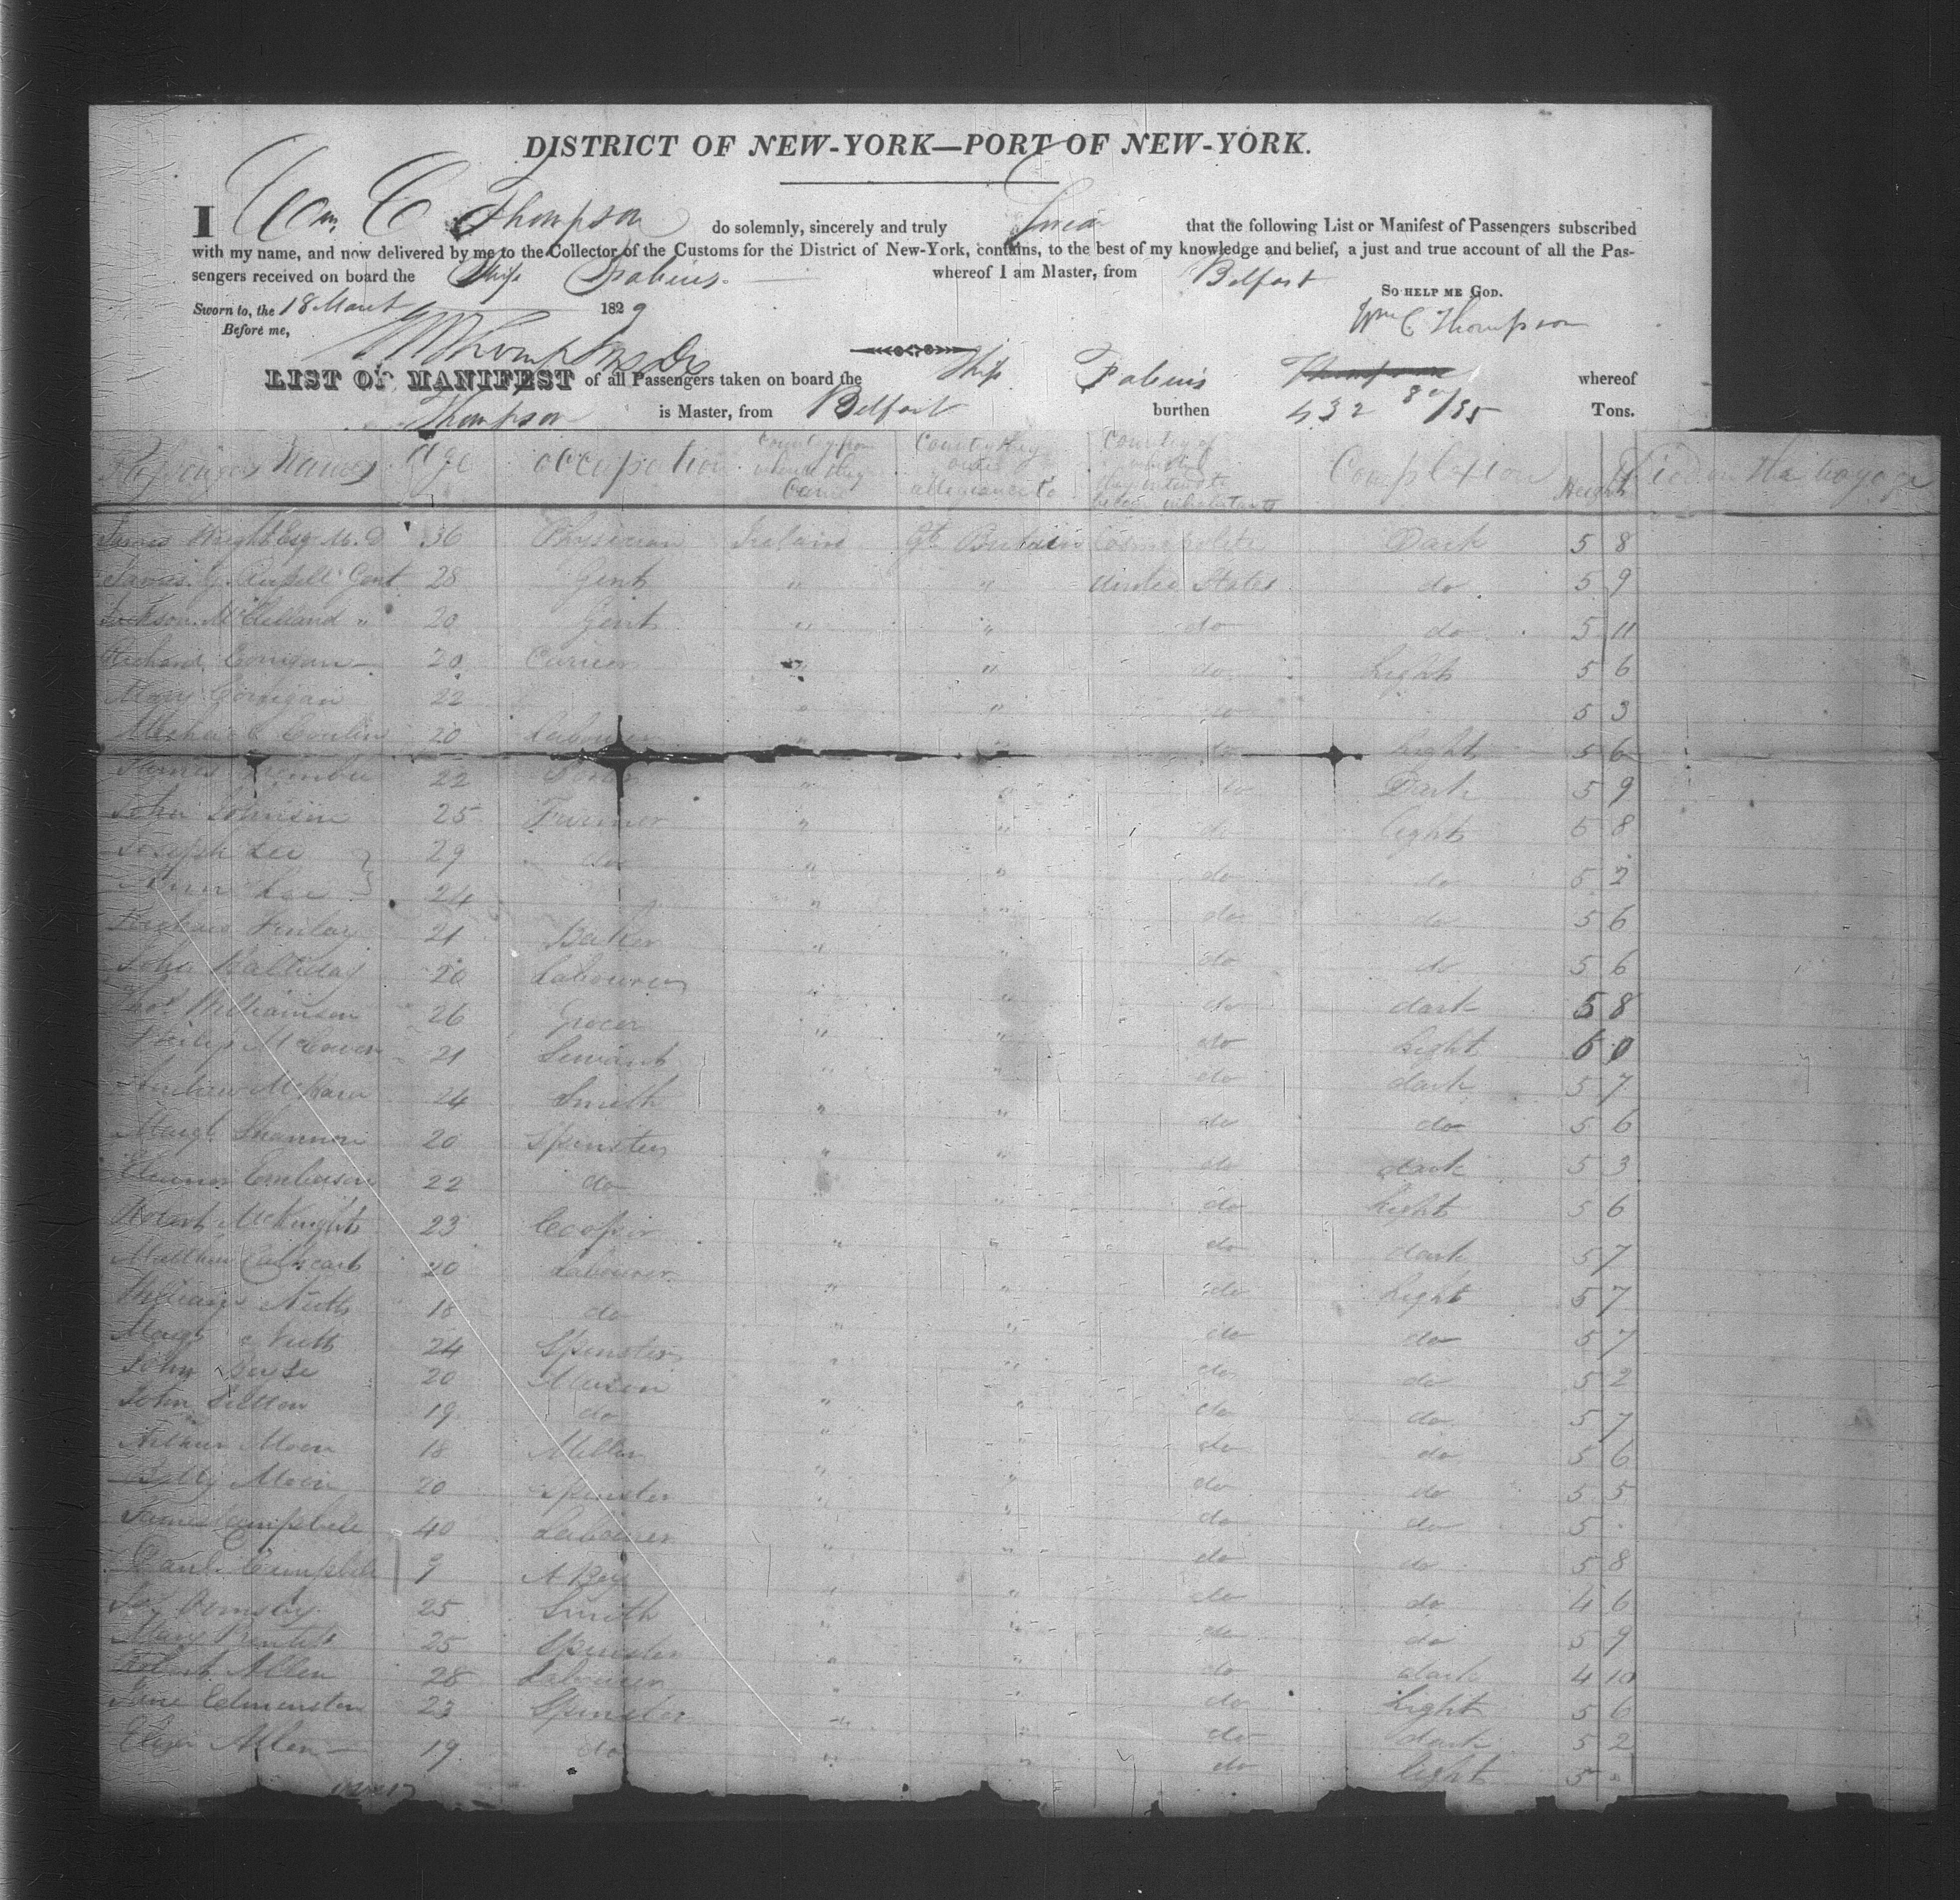 DISTRICT OF NEW-YORK—PORT OF NEW-YORK.
I Wm. C Thompson do solemnly, sincerely and truly Swear that the following List or Manifest of Passengers subscribed
with my name, and now delivered by me to the Collector of the Customs for the District of New-York, contains, to the best of my knowledge and belief, a just and true account of all the Pas-
sengers received on board the Ship Fabius. whereof I am Master, from Belfast
SO HELP ME GOD.
Sworn to, the 18 March 1829
Wm C Thompson
Before me,
LIST OR MANIFEST of all Passengers taken on board the Ship Fabius Thompson whereof
Thompson is Master, from Belfast burthen 432 80/95 Tons.
Passengers Names Age occupation Country from whence they Came Country they owe allegiance to Country of which they intend to become inhabitants Complexion Height Died on the voyage
James Wright Esq M.D 36 Physician Ireland Gt Britain Cosmopolite Dark 5 8
James. G. Gent 28 Gent " " United States do 5 9
Jackson McClelland " 20 Gent " " do do 5 11
Richard Corrigan 20 Currier " " do Light 5 6
Mary Corrigan 22 " " do 5 3
Michael Conlin 20 Labourer " " do Light 5 6
James 22 " " do Dark 5 9
John Johnson 25 Farmer " " do light 5 8
Joseph Lee 29 do " " do do 5 2
Ann Lee 24 " " do do 5 6
Finlay 21 Baker " " do do 5 6
John Halliday 20 Labourer " " do dark 5 8
Thos Williamson 26 Grocer " " do Light 6 0
Philip McGovern 21 Servant " " do dark 5 7
Andrew 24 Smith " " do do 5 6
Margt Shannon 20 Spinster " " do dark 5 3
Eleanor Emberson 22 do do Light 5 6
Robert McKnight 23 Cooper " " do dark 5 7
Matthew Cathcart 20 Labourer " " do Light 5 7
William Nutt 18 do " " do do 5 7
Margt Nutt 24 Spinster " " do do 5 2
John 20 Mason " " do do 5 7
John 19 do " do do 5 6
Arthur Moon 18 Miller " " do do 5 5
Betty Moon 20 Spinster " do do 5
James Campbell 40 Labourer " " do do 5 8
Danl. Campbell 9 A Boy " " do do 4 6
Jas Ormsby 25 Smith " " do do 5 9
Mary 25 Spinster " " do dark 4 10
Robert Allen 28 Labourer " " do Light 5 6
Jane Edmenston 23 Spinster " " do dark 5 2
Eliza Allen 19 do " " do light 5